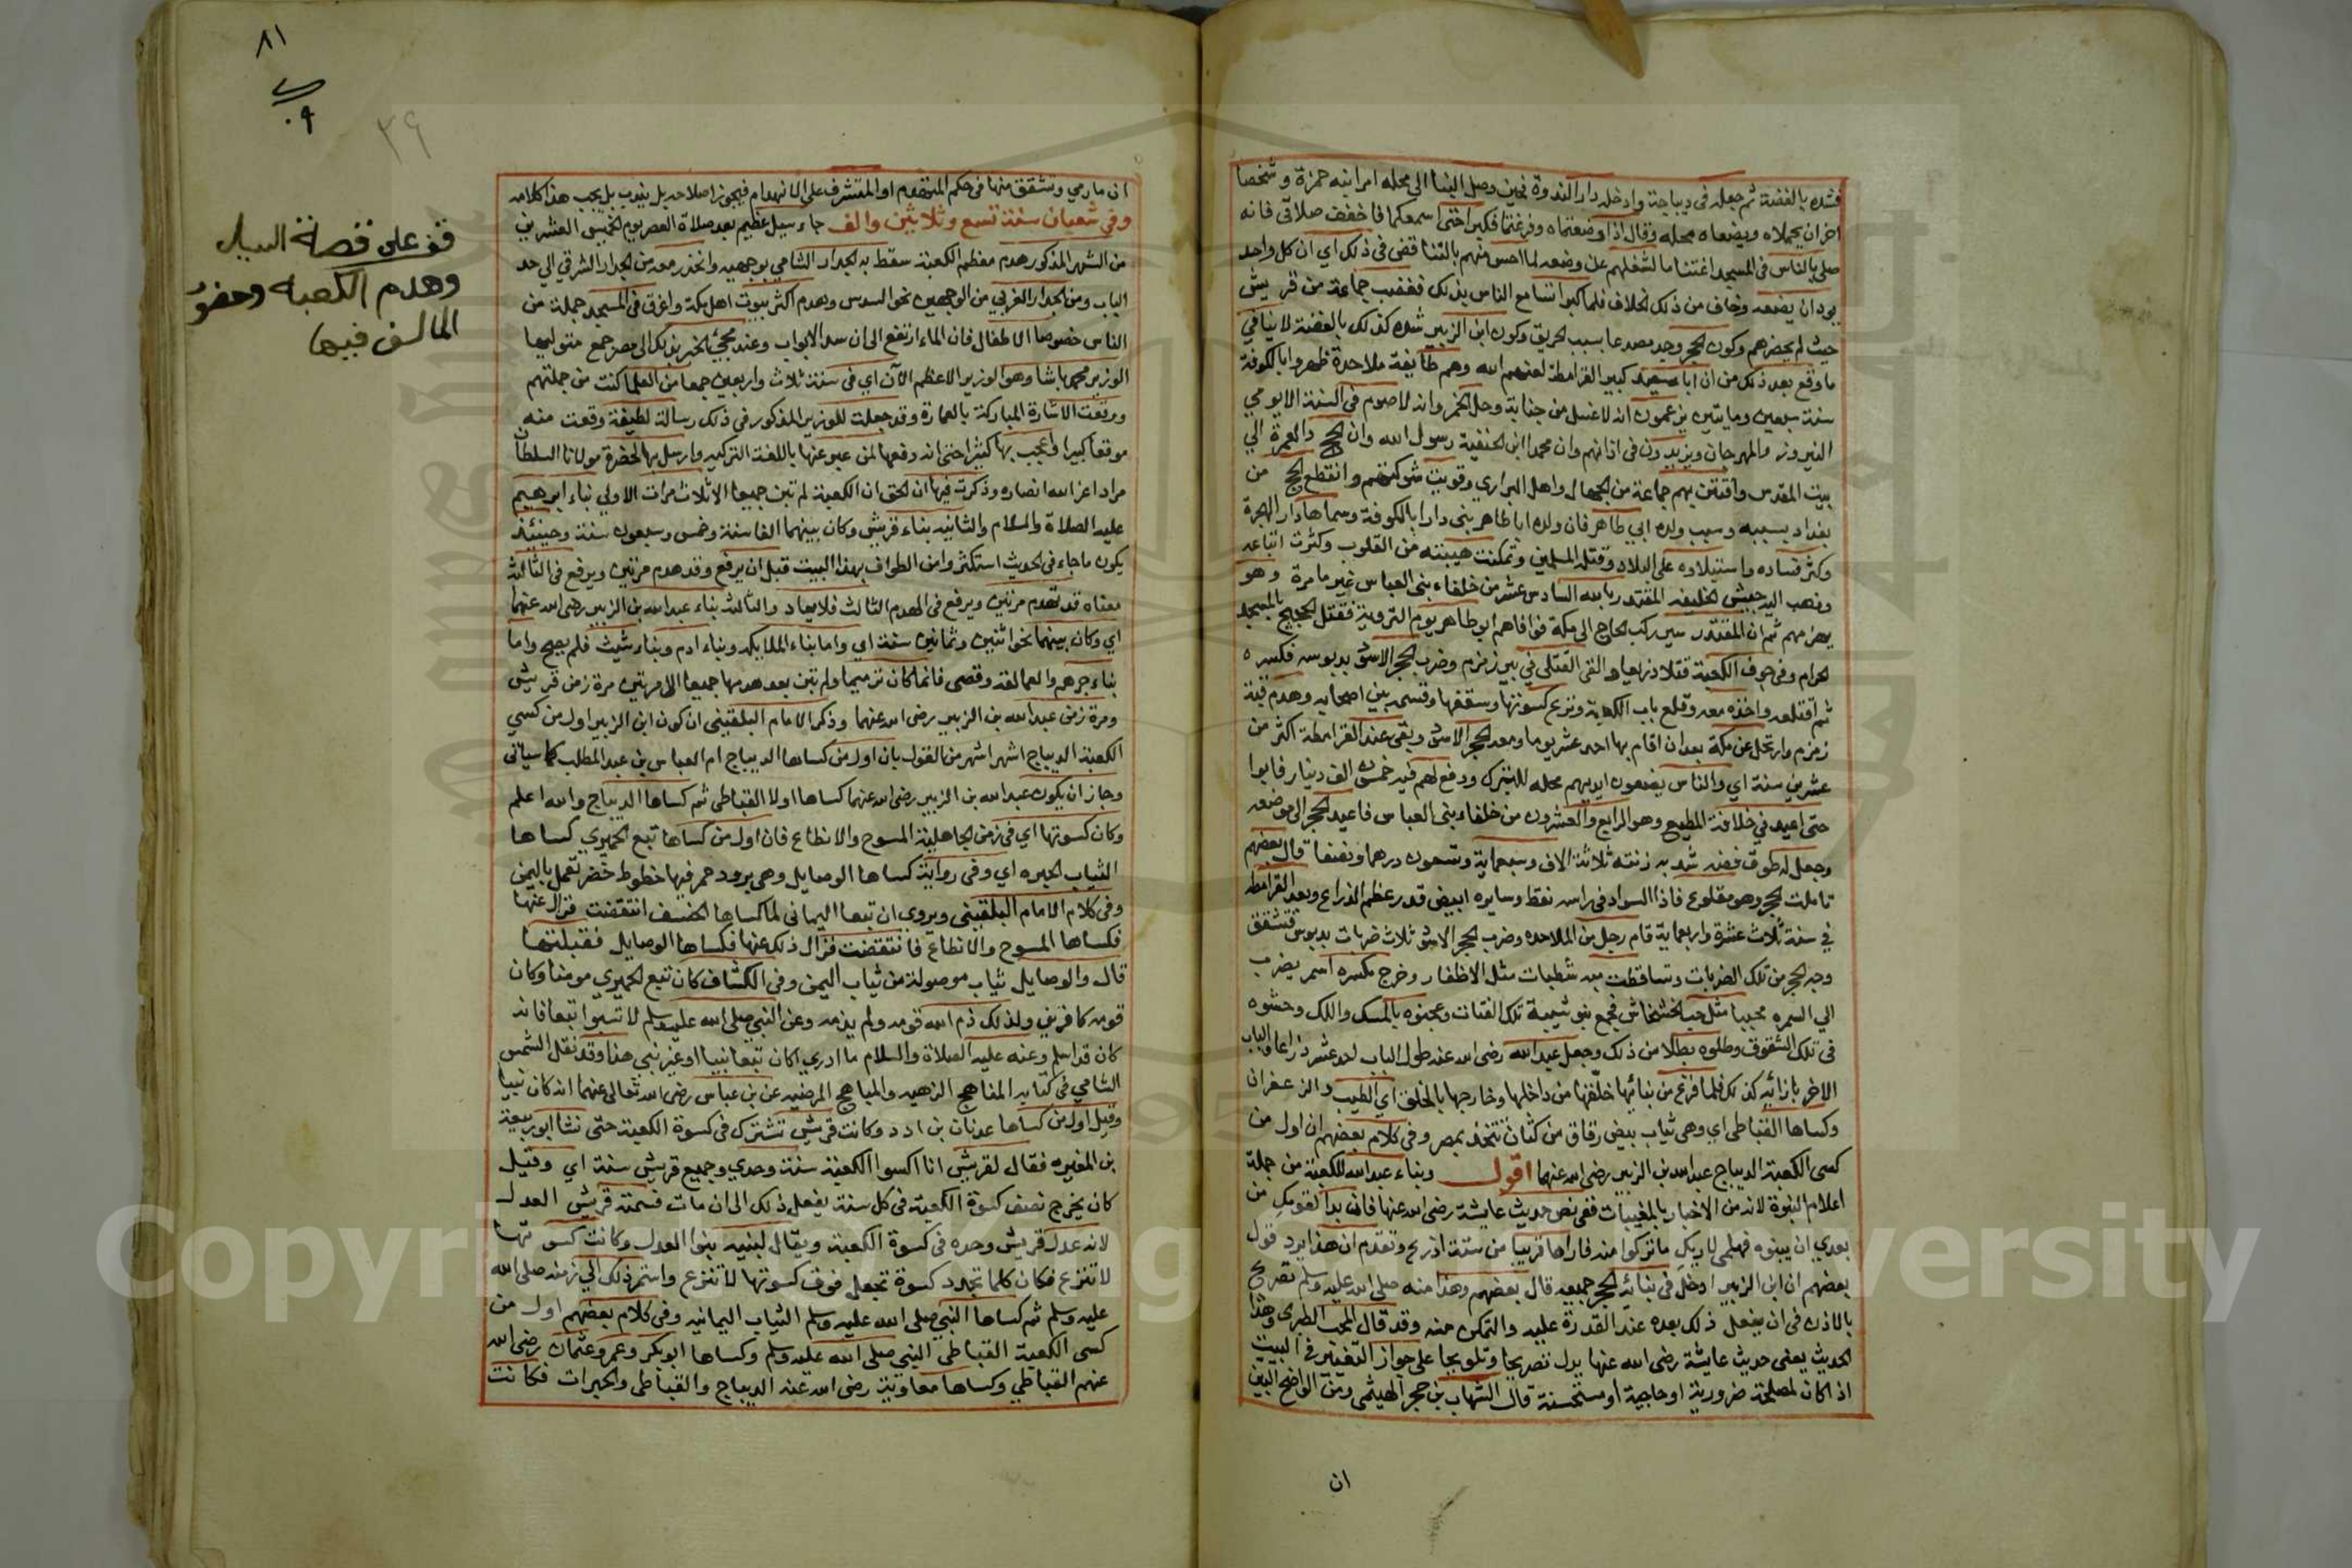 فشده بالفضة ثم جعله في ديباجة وادخله دار الندوة فحين وصل البنا الى محله امر ابنه حمزة وشخصا
اخر ان يحملاه ويضعاه محله وقال اذا وضعتماه وفرغتما فكبرا حتى اسمعكما فاخفف صلاتي فانه
صلى بالناس في المسجد اغتناما لشغلهم عن وضعه لما احس منهم بالتنافس في ذلك اي ان كل واحد
يود ان يضعه وخاف من ذلك الخلاف فلما كبرا تسامع الناس بذلك فغضب جماعة من قريش
حيث لم يحضرهم وكون الحجر وجد مصدعا بسبب الحريق وكون ابن الزبير شده كذلك بالفضة لا ينافي
ما وقع بعد ذلك من ان ابا سعيد كبير القرامطة لعنهم الله وهم طايفة ملاحدة ظهروا بالكوفة
سنة سبعين ومايتين يزعمون ان لا غسل من جنابة وحل الخمر وان لا صوم في السنة الا يومي
النيروز والمهرجان ويزيدون في اذانهم وان محمد ابن الحنفية رسول الله وان الحج والعمرة الى
بيت المقدس وافتتن بهم جماعة من الجهال واهل البراري وقويت شوكتهم وانقطع الحج من
بغداد بسببه وسبب ولده ابي طاهر فان ولده ابا طاهر بنى دارا بالكوفة وسماها دار الهجرة
وكثر فساده واستيلاؤه على البلاد وقتله المسلمين وتمكنت هيبته من القلوب وكثرت اتباعه
وذهب اليه جيش الخليفه المقتدر بالله السادس عشر من خلفاء بني العباس غير ما مرة وهو
يهزمهم ثم ان المقتدر سير ركب الحاج الى مكة فوافاهم ابو طاهر يوم التروية فقتل الحجيج بالمسجد
الحرام وفي جوف الكعبة قتلا ذريعا والقى القتلى في بير زمزم وضرب الحجر الاسود بدبوسه فكسره
ثم اقتلعه واخذه معه وقلع باب الكعبة ونزع كسوتها وسقفها وقسمه بين اصحابه وهدم قبة
زمزم وارتحل عن مكة بعد ان اقام بها احد عشر يوما ومعه الحجر الاسود وبقي عند القرامطة اكثر من
عشرين سنة اي والناس يضعون ايديهم محله للتبرك ودفع لهم فيه خمسون الف دينار فابوا
حتى اعيد في خلافة المطيع وهو الرابع والعشرون من خلفاء بني العباس فاعيد الحجر الى موضعه
وجعل له طوق فضه شد به زنته ثلاثة الاف وسبعماية وتسعون درهما ونصفا قال بعضهم
تاملت الحجر وهو مقلوع فاذا السواد في راسه فقط وسايره ابيض قدر عظم الذراع وبعد القرامطة
في سنة ثلاث عشرة واربعماية قام رجل من الملاحده وضرب الحجر الاسود ثلاث ضربات بدبوس فتشقق
وجه الحجر من تلك الضربات وتساقطت منه شظيات مثل الاظفار وخرج مكسره اسمر يضرب
الى السمره محببا مثل حب الخشخاش فجمع بنو شيبة تلك الفتات وعجنوه بالمسك واللك وحشوه
في تلك الشقوق وطلوه بطلا من ذلك وجعل عبد الله رضى الله عنه طول الباب احد عشر ذراعا والباب
الاخر بازائه كذلك فلما فرغ من بنائها خلقها من داخلها وخارجها بالخلوق اي الطيب والزعفران
وكساها القباطي اي وهي ثياب بيض رقاق من كتان تتخذ بمصر وفي كلام بعضهم ان اول من
كسى الكعبة الديباج عبد الله بن الزبير رضى الله عنهما اقول وبناء عبد الله للكعبة من جملة
اعلام النبوة لانه من الاخبار بالمغيبات ففي نص حديث عايشة رضى الله عنها فان بدا لقومك من
بعدي ان يبنوه فهلمي لاريك ما تركوا منه فاراها قريبا من ستة اذرع وتقدم ان هذا يرد قول
بعضهم ان ابن الزبير ادخل في بنائه الحجر جميعه قال بعضهم وهذا منه صلى الله عليه وسلم تصريح
بالاذن في ان يفعل ذلك بعده عند القدرة عليه والتمكن منه وقد قال المحب الطبرى وهذا
الحديث يعني حديث عايشة رضى الله عنها يدل تصريحا وتلويحا على جواز التغيير في البيت
اذا كان لمصلحة ضرورية او حاجية او مستحسنة قال الشهاب بن حجر الهيثمي ومن الواضح البين
ان
ان ما رمي وتشقق منها في حكم المنهدم او المشرف على الانهدام فيجوز اصلاحه بل يندب بل يجب هذا كلامه
وفي شعبان سنة تسع وثلاثين والف جاء سيل عظيم بعد صلاة العصر يوم الخميس العشرين
من الشهر المذكور هدم معظم الكعبة سقط به الجدار الشامي بوجهيه وانحدر معه من الجدار الشرقي الى حد
الباب ومن الجدار الغربي من الوجهين نحو السدس وهدم اكثر بيوت اهل مكة واغرق في المسجد جملة من
الناس خصوصا الاطفال فان الماء ارتفع الى ان سد الابواب وعند مجيء الخبر بذلك الى مصر جمع متوليها
الوزير محمد باشا وهو الوزير الاعظم الآن اي في سنة ثلاث واربعين جمعا من العلما كنت من جملتهم
ووقعت الاشارة المباركة بالعمارة وقد جعلت للوزير المذكور في ذلك رسالة لطيفة وقعت منه
موقعا كبيرا واعجب بها كثيرا حتى انه دفعها لمن عبر عنها باللغة التركيه وارسل بها لحضرة مولانا السلطان
مراد اعز الله انصاره وذكرت فيها ان الحق ان الكعبة لم تبن جميعا الا ثلاث مرات الاولى بناء ابراهيم
عليه الصلاة والسلام والثانيه بناء قريش وكان بينهما الفا سنة وخمس وسبعون سنة وحينئذ
يكون ما جاء في الحديث استكثروا من الطواف بهذا البيت قبل ان يرفع وقد هدم مرتين ويرفع في الثالث
معناه قد تهدم مرتين ويرفع في الهدم الثالث فلا يعاد والثالث بناء عبد الله بن الزبير رضى الله عنهما
اي وكان بينهما نحو اثنين وثمانين سنة اي واما بناء الملايكه وبناء ادم وبناء شيث فلم يصح واما
بناء جرهم والعمالقة وقصى فانما كان ترميما ولم تبن بعد هدمها جميعا الا مرتين مرة زمن قريش
ومرة زمن عبد الله بن الزبير رضى الله عنهما وذكر الامام البلقينى ان كون ابن الزبير اول من كسى
الكعبة الديباج اشهر اشهر من القول بان اول من كساها الديباج ام العباس بن عبد المطلب كما سياتى
وجاز ان يكون عبد الله بن الزبير رضى الله عنهما كساها اولا القباطى ثم كساها الديباج والله اعلم
وكان كسوتها اي في زمن الجاهلية المسوح والانطاع فان اول من كساها تبع الحميري كساها
الثياب الحبره اي وفي رواية كساها الوصايل وهي برود حمر فيها خطوط خضر تعمل باليمن
وفي كلام الامام البلقينى ويروى ان تبعا اليمانى لما كساها الخصف انتقضت فزال عنها
فكساها المسوح والانطاع فانتقضت فزال ذلك عنها فكساها الوصايل فقبلتها
قال والوصايل ثياب موصولة من ثياب اليمن وفي الكشاف كان تبع الحميري مومنا وكان
قومه كافرين ولذلك ذم الله قومه ولم يذمه وعن النبي صلى الله عليه وسلم لا تسبوا تبعا فانه
كان قد اسلم وعنه عليه الصلاة والسلام ما ادرى اكان تبعا نبيا او غير نبي هذا وقد نقل الشمس
الشامي في كتابه المناهج الزهيه والمباهج المرضيه عن بن عباس رضى الله تعالى عنهما انه كان نبيا
وقيل اول من كساها عدنان بن ادد وكانت قريش تشترك في كسوة الكعبة حتى نشا ابو ربيعة
بن المغيره فقال لقريش انا اكسوا الكعبة سنة وحدي وجميع قريش سنة اي وقيل
كان يخرج نصف كسوة الكعبة في كل سنة يفعل ذلك الى ان مات فسمته قريش العدل
لانه عدل قريش وحده في كسوة الكعبة ويقال لبنيه بنوا العدل وكانت كسوتها
لا تنزع فكان كلما تجدد كسوة تجعل فوق كسوتها لا تنزع واستمر ذلك الى زمنه صلى الله
عليه وسلم ثم كساها النبي صلى الله عليه وسلم الثياب اليمانيه وفي كلام بعضهم اول من
كسى الكعبة القباطى النبي صلى الله عليه وسلم وكساها ابو بكر وعمر وعثمان رضى الله
عنهم القباطي وكساها معاوية رضى الله عنه الديباج والقباطى والحبرات فكانت
٨١
٣٩
قف على قصة السيل
وهدم الكعبه وحضور
المالف فيها
Copyright © King Saud University